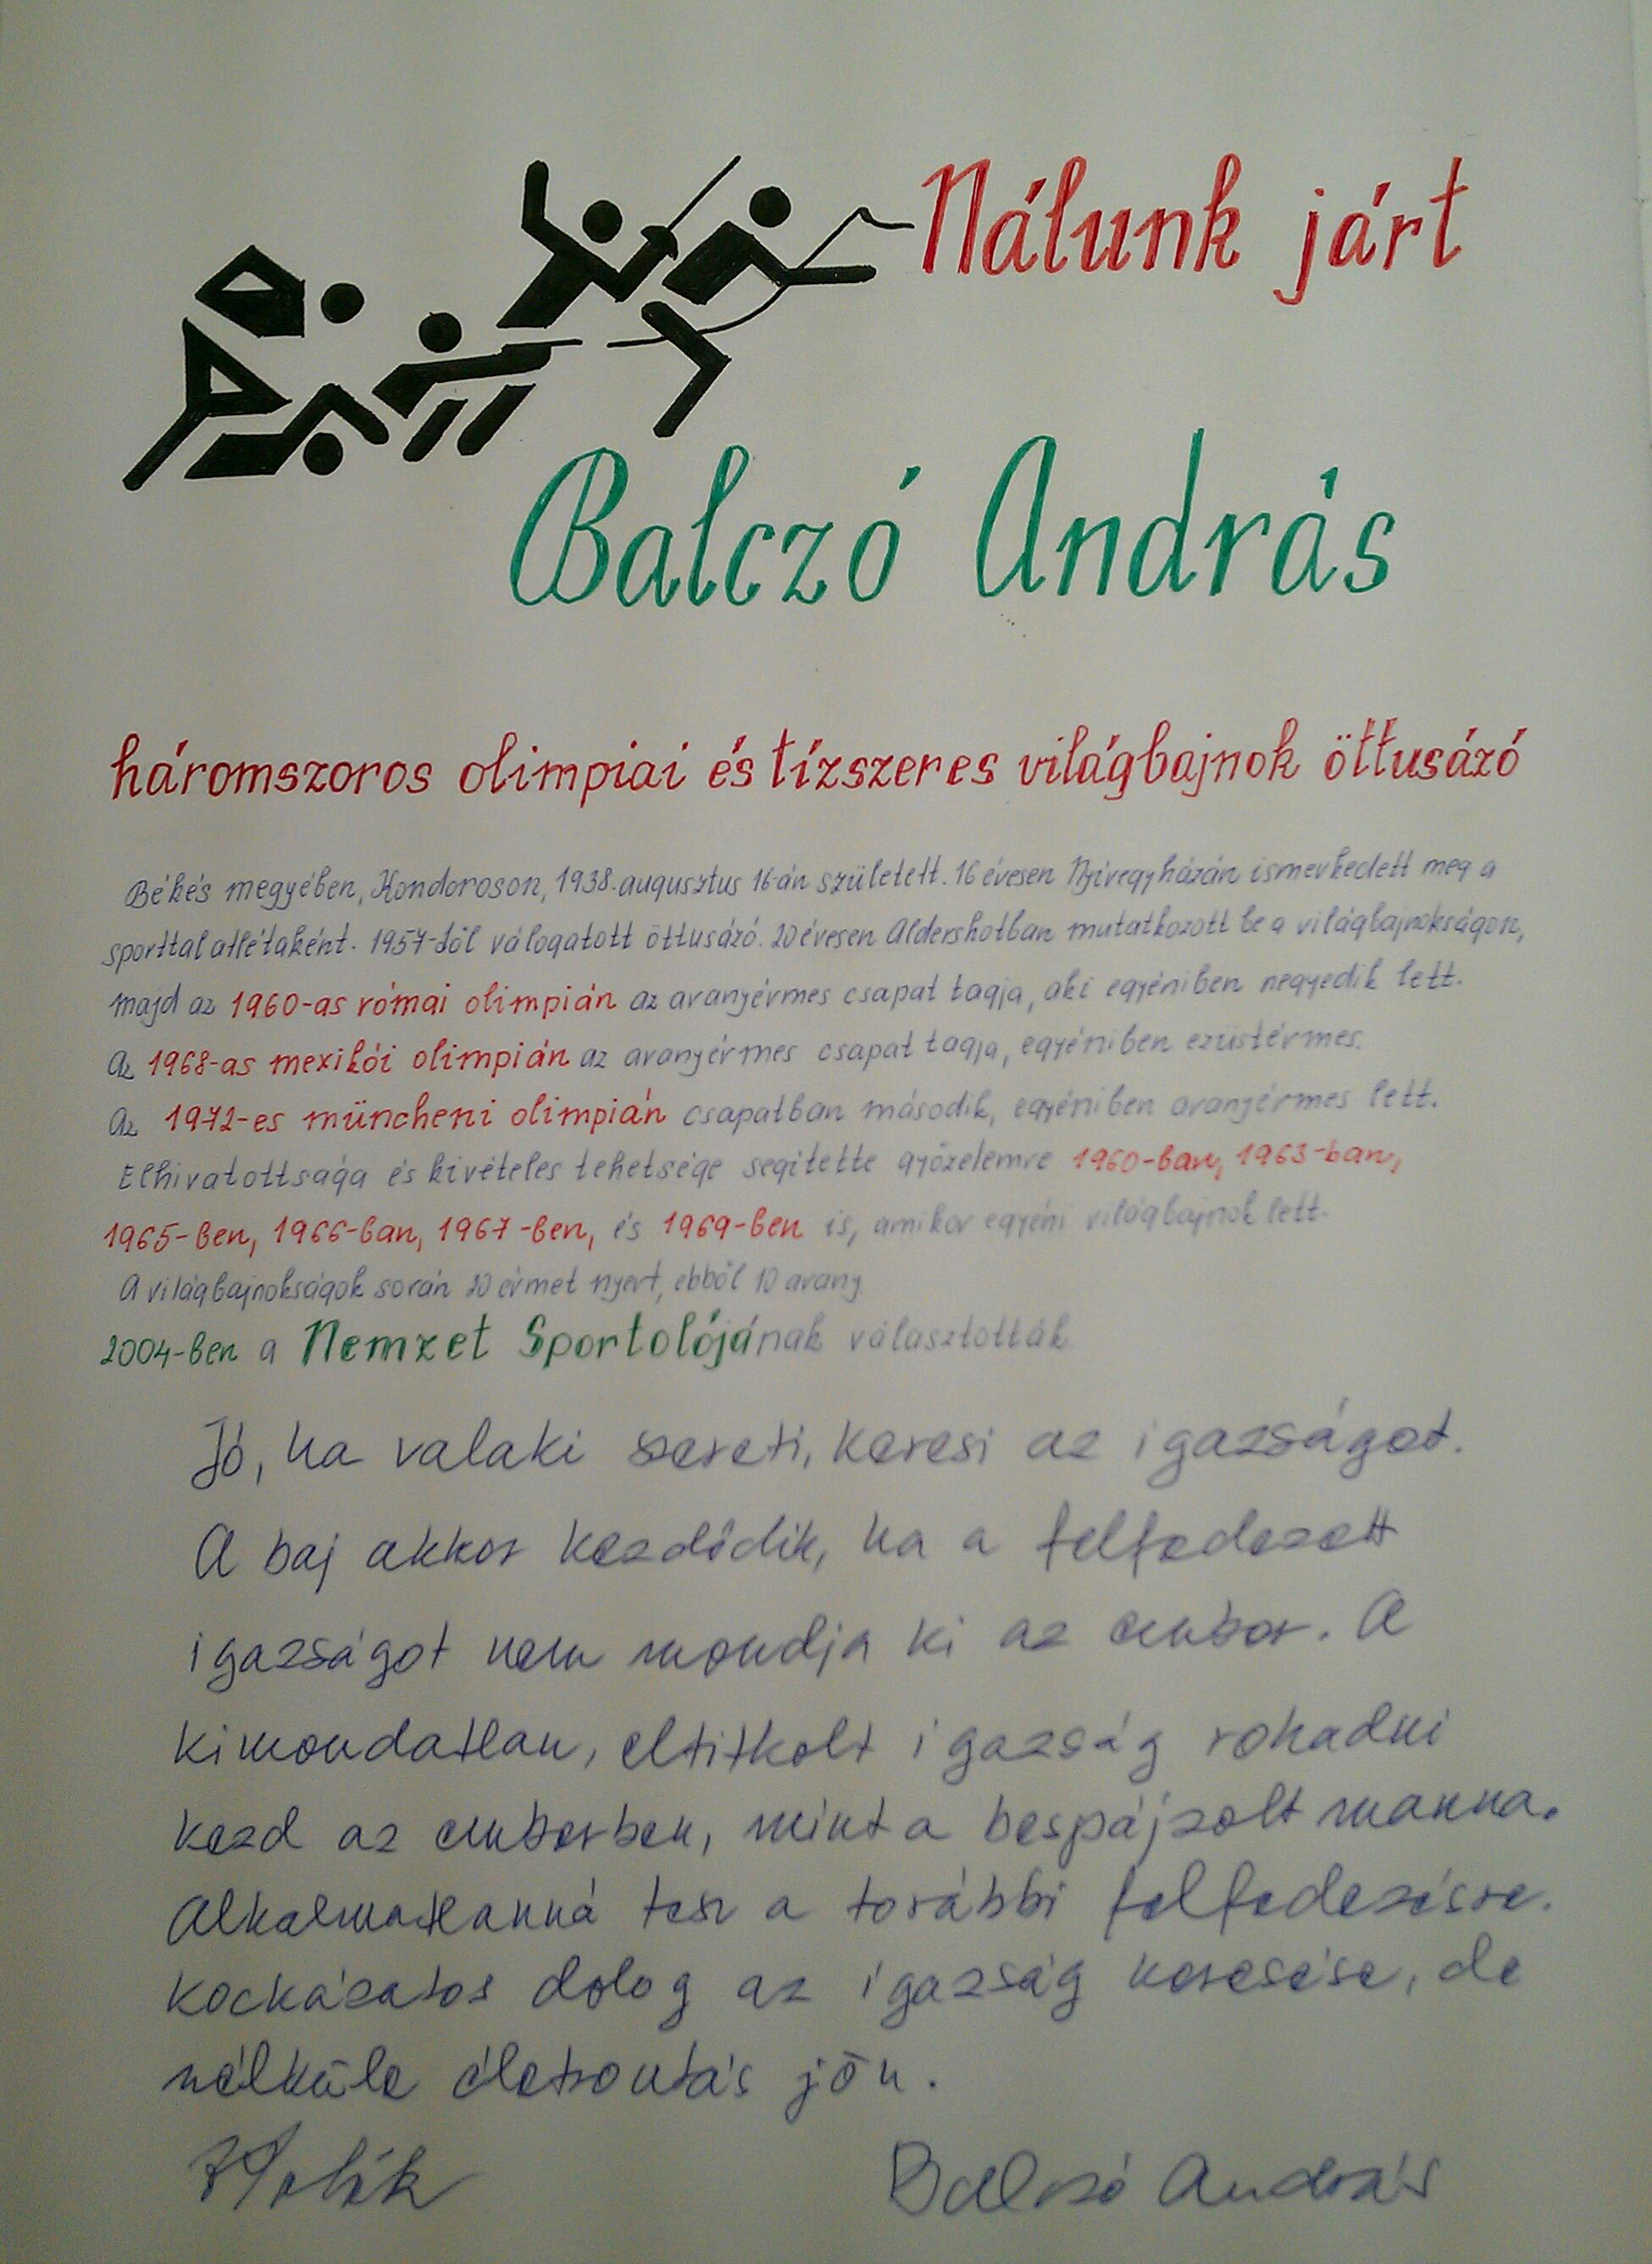 Nálunk járt
Balczó András
háromszoros olimpiai és tízszeres világbajnok öttusázó
Békés megyében, Kondoroson, 1938. augusztus 16-án született. 16 évesen Nyíregyházán ismerkedett meg a
sporttal atlétaként. 1957-től válogatott öttusázó. 20 évesen Aldershotban mutatkozott be a világbajnokságon,
majd az 1960-as római olimpián az aranyérmes csapat tagja, aki egyéniben negyedik lett.
Az 1968-as mexikói olimpián az aranyérmes csapat tagja, egyéniben ezüstérmes.
Az 1972-es müncheni olimpián csapatban második, egyéniben aranyérmes lett.
Elhivatottsága és kivételes tehetsége segítette győzelemre 1960-ban, 1963-ban,
1965-ben, 1966-ban, 1967-ben, és 1969-ben is, amikor egyéni világbajnok lett.
A világbajnokságok során 20 érmet nyert, ebből 10 arany
2004-ben a Nemzet Sportolójának választották
Jó, ha valaki szereti, keresi az igazságot.
A baj akkor kezdődik, ha a felfedezett
igazságot nem mondja ki az ember. A
kimondatlan, eltitkolt igazság rohadni
kezd az emberben, mint a bespájzolt manna.
Alkalmatlanná tesz a további felfedezésre.
Kockázatos dolog az igazság keresése, de
nélküle életrontás jön.
Balczó András